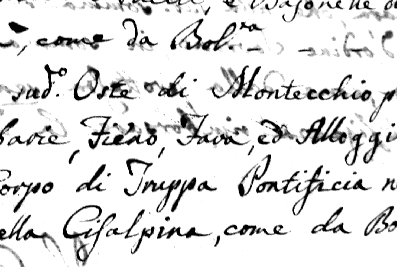 e Bajonette
, come da Bol.ra
sud.o Oste di Montecchio p
barie, Fieno, Fava, ed Alloggi
Corpo di Truppa Pontificia n
ella Cisalpina, come da Bo